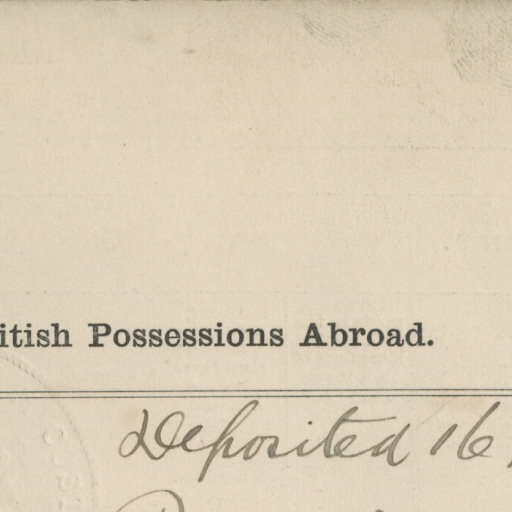 itish Possessions Abroad.
Deposited 16